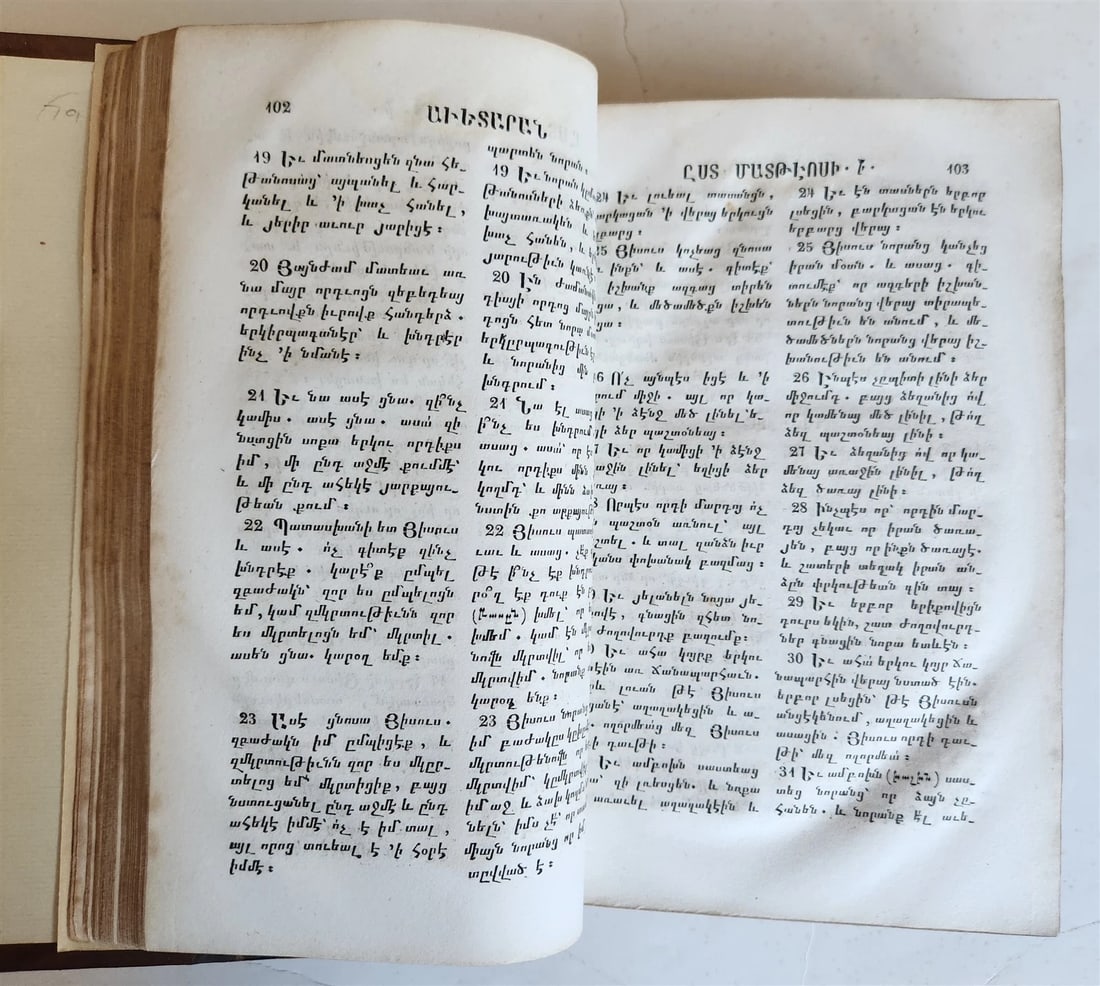 102
ԱՒԵՏԱՐԱՆ
19 Եւ մատնեսցեն զնա հե-
թանոսաց՝ այպանել և հար-
կանել և ՚ի խաչ հանել,
և յերիր աւուր յարիցէ։
20 Յայնժամ մատեաւ առ
նա մայր որդւոցն զեբեդեայ
որդւովքն իւրովք հանդերձ.
երկիրպագանէր՝ և խնդրէր
ինչ ՚ի նմանէ։
21 Եւ նա ասէ ցնա. զի՞նչ
կամիս. ասէ ցնա. ասա՛ զի
նստցին սոքա երկու որդիքս
իմ, մի ընդ աջմէ քումմէ՝
և մի ընդ ահեկէ յարքայու-
թեան քում։
22 Պատասխանի ետ Յիսուս
և ասէ. ո՛չ գիտէք զինչ
խնդրէք. կարէ՞ք ըմպել
զբաժակն՝ զոր ես ըմպելոցն
եմ, կամ զմկրտութիւնն զոր
ես մկրտելոցն եմ՝ մկրտիլ.
ասեն ցնա. կարօղ եմք։
23 Ասէ ցնոսա Յիսուս.
զբաժակն իմ ըմպիցէք, և
զմկրտութիւնն զոր ես մկըր-
տելոց եմ՝ մկրտիցիք, բայց
նստուցանել ընդ աջմէ և ընդ
ահեկէ իմմէ՝ ո՛չ է իմ տալ,
այլ որոց տուեալ է ՚ի հօրէ
իմմէ։
պարտեն նորան,
19 Եւ նորան
թանոսների ձեռքին
խայտառակեն և
խաչ հանեն, և
յարութիւն
20 Էն ժամանակն
դիայի որդոց մայրը
դոցն հետ նորա մօտ
երկըրպագութիւն
և նորանից մին
խնդրում։
21 Նա էլ ասաց
ի՞նչ ես խնդրում
ասաց. ասա՛ որ է
կու որդիքս մինն
կողմդ՝ և մինն ձախ
նստին քո
22 Յիսուս պատասխան
ւաւ և ասաց. չէք
թէ ի՞նչ էք խնդրում
րօ՞ղ էք դուք էն
խմել՝ որ
խմեմ. կամ էն
նովն մկրտվիլ՝ որ
մկրտվիմ. նորանք
կարօղ ենք։
23 Յիսուս նորանց
իմ բաժակըս կըխմէք
մկրտութենովն որ
մկրտվիմ՝ կըմկրտվիք
իմ աջ և ձախ կողմը
նելն՝ իմս չէ՝ որ
միայն նորանց որ իմ
տըված է։
ԸՍՏ ՄԱՏԹԷՈՍԻ. Ի.
103
24 Եւ լուեալ տասանցն,
բարկացան ՚ի վերայ երկուցն
եղբարց։
25 Յիսուս կոչեաց զնոսա
առ ինքն՝ և ասէ. գիտէք՝
իշխանք ազգաց տիրեն
նոցա, և մեծամեծքն իշխեն
նոցա։
26 Ո՛չ այնպէս իցէ և ՚ի
ձերում միջի. այլ որ կա-
միցի ՚ի ձէնջ մեծ լինել՝ ե-
ղիցի ձեր պաշտօնեայ։
27 Եւ որ կամիցի ՚ի ձէնջ
առաջին լինել՝ եղիցի ձեր
ծառայ։
28 Որպէս որդի մարդոյ ո՛չ
եկն պաշտօն առնուլ՝ այլ
պաշտել. և տալ զանձն իւր
փրկանս փոխանակ բազմաց։
29 Եւ յելանելն նոցա յե-
րիքովէ, գնացին զհետ նո-
րա ժողովուրդք բազումք։
30 Եւ ահա կոյրք երկու
նստէին առ ճանապարհաւն.
իբրև լուան թէ Յիսուս
անցանէ՝ աղաղակեցին և ա-
սեն. ողորմեա՛ց մեզ Յիսուս
որդի դաւթի։
31 Եւ ամբոխն սաստեաց
նոցա՝ զի լռեսցեն. և նոքա
առաւել աղաղակէին և
24 Եւ էն տասներն երբոր
լսեցին, բարկացան էն երկու
եղբարց վերայ։
25 Յիսուս նորանց կանչեց
իրան մօան. և ասաց. գի-
տումէք՝ որ ազգերի իշխան-
ներն նորանց վերայ տիրապե-
տութիւն են անում, և մե-
ծամեծներն նորանց վերայ իշ-
խանութիւն են անում։
26 Էնպէս չըպիտի լինի ձեր
միջումդ. բայց ձեզանից ով
որ կամենայ մեծ լինիլ, թող
ձեզ պաշտօնեայ լինի։
27 Եւ ձեզանից ով որ կա-
մենայ առաջին լինիլ, թող
ձեզ ծառայ լինի։
28 Ինչպէս որ՝ որդին մար-
դոյ չեկաւ որ իրան ծառա-
յեն, բայց որ ինքն ծառայէ.
և շատերի տեղակ իրան ան-
ձըն փրկութեան գին տայ։
29 Եւ երբոր երիքովիցն
դուրս եկին, շատ ժողովուրդ-
ներ գնացին նորա ետևէն։
30 Եւ ահա՛ երկու կոյր ճա-
նապարհին վերայ նստած էին.
երբոր լսեցին՝ թէ Յիսուսն
անցէկենում, աղաղակեցին և
ասացին. Յիսուս որդի դաւ-
թի՝ մեզ ողորմեա՛։
31 Եւ ամբոխն (խալխն) սաս-
տեց նորանց՝ որ ձայն չը-
հանեն. և նորանք էլ աւե-